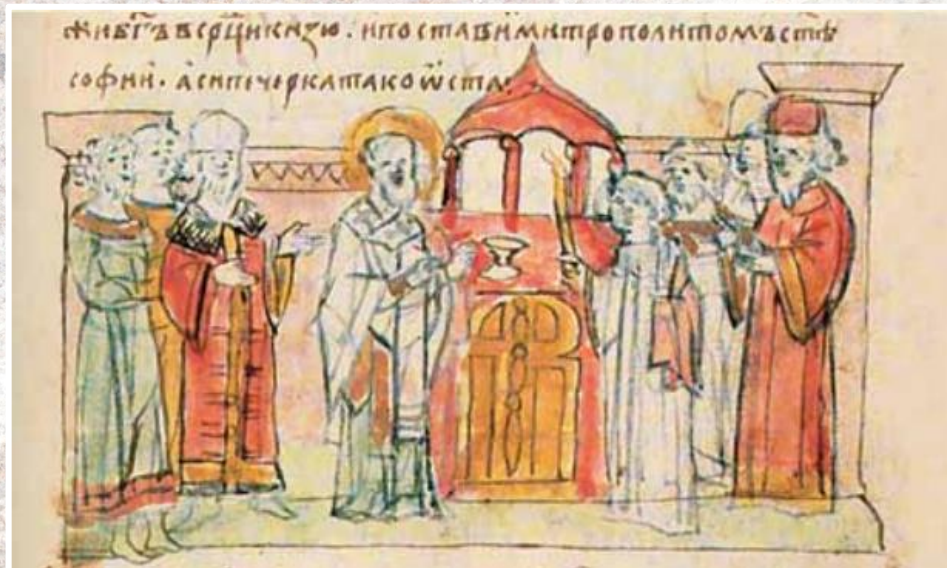 жи бг҃ъ в ср҃ци кнѧзю . и постави митрополитомъ ст҃ѣ
софии . а си печорка тако ѡста .